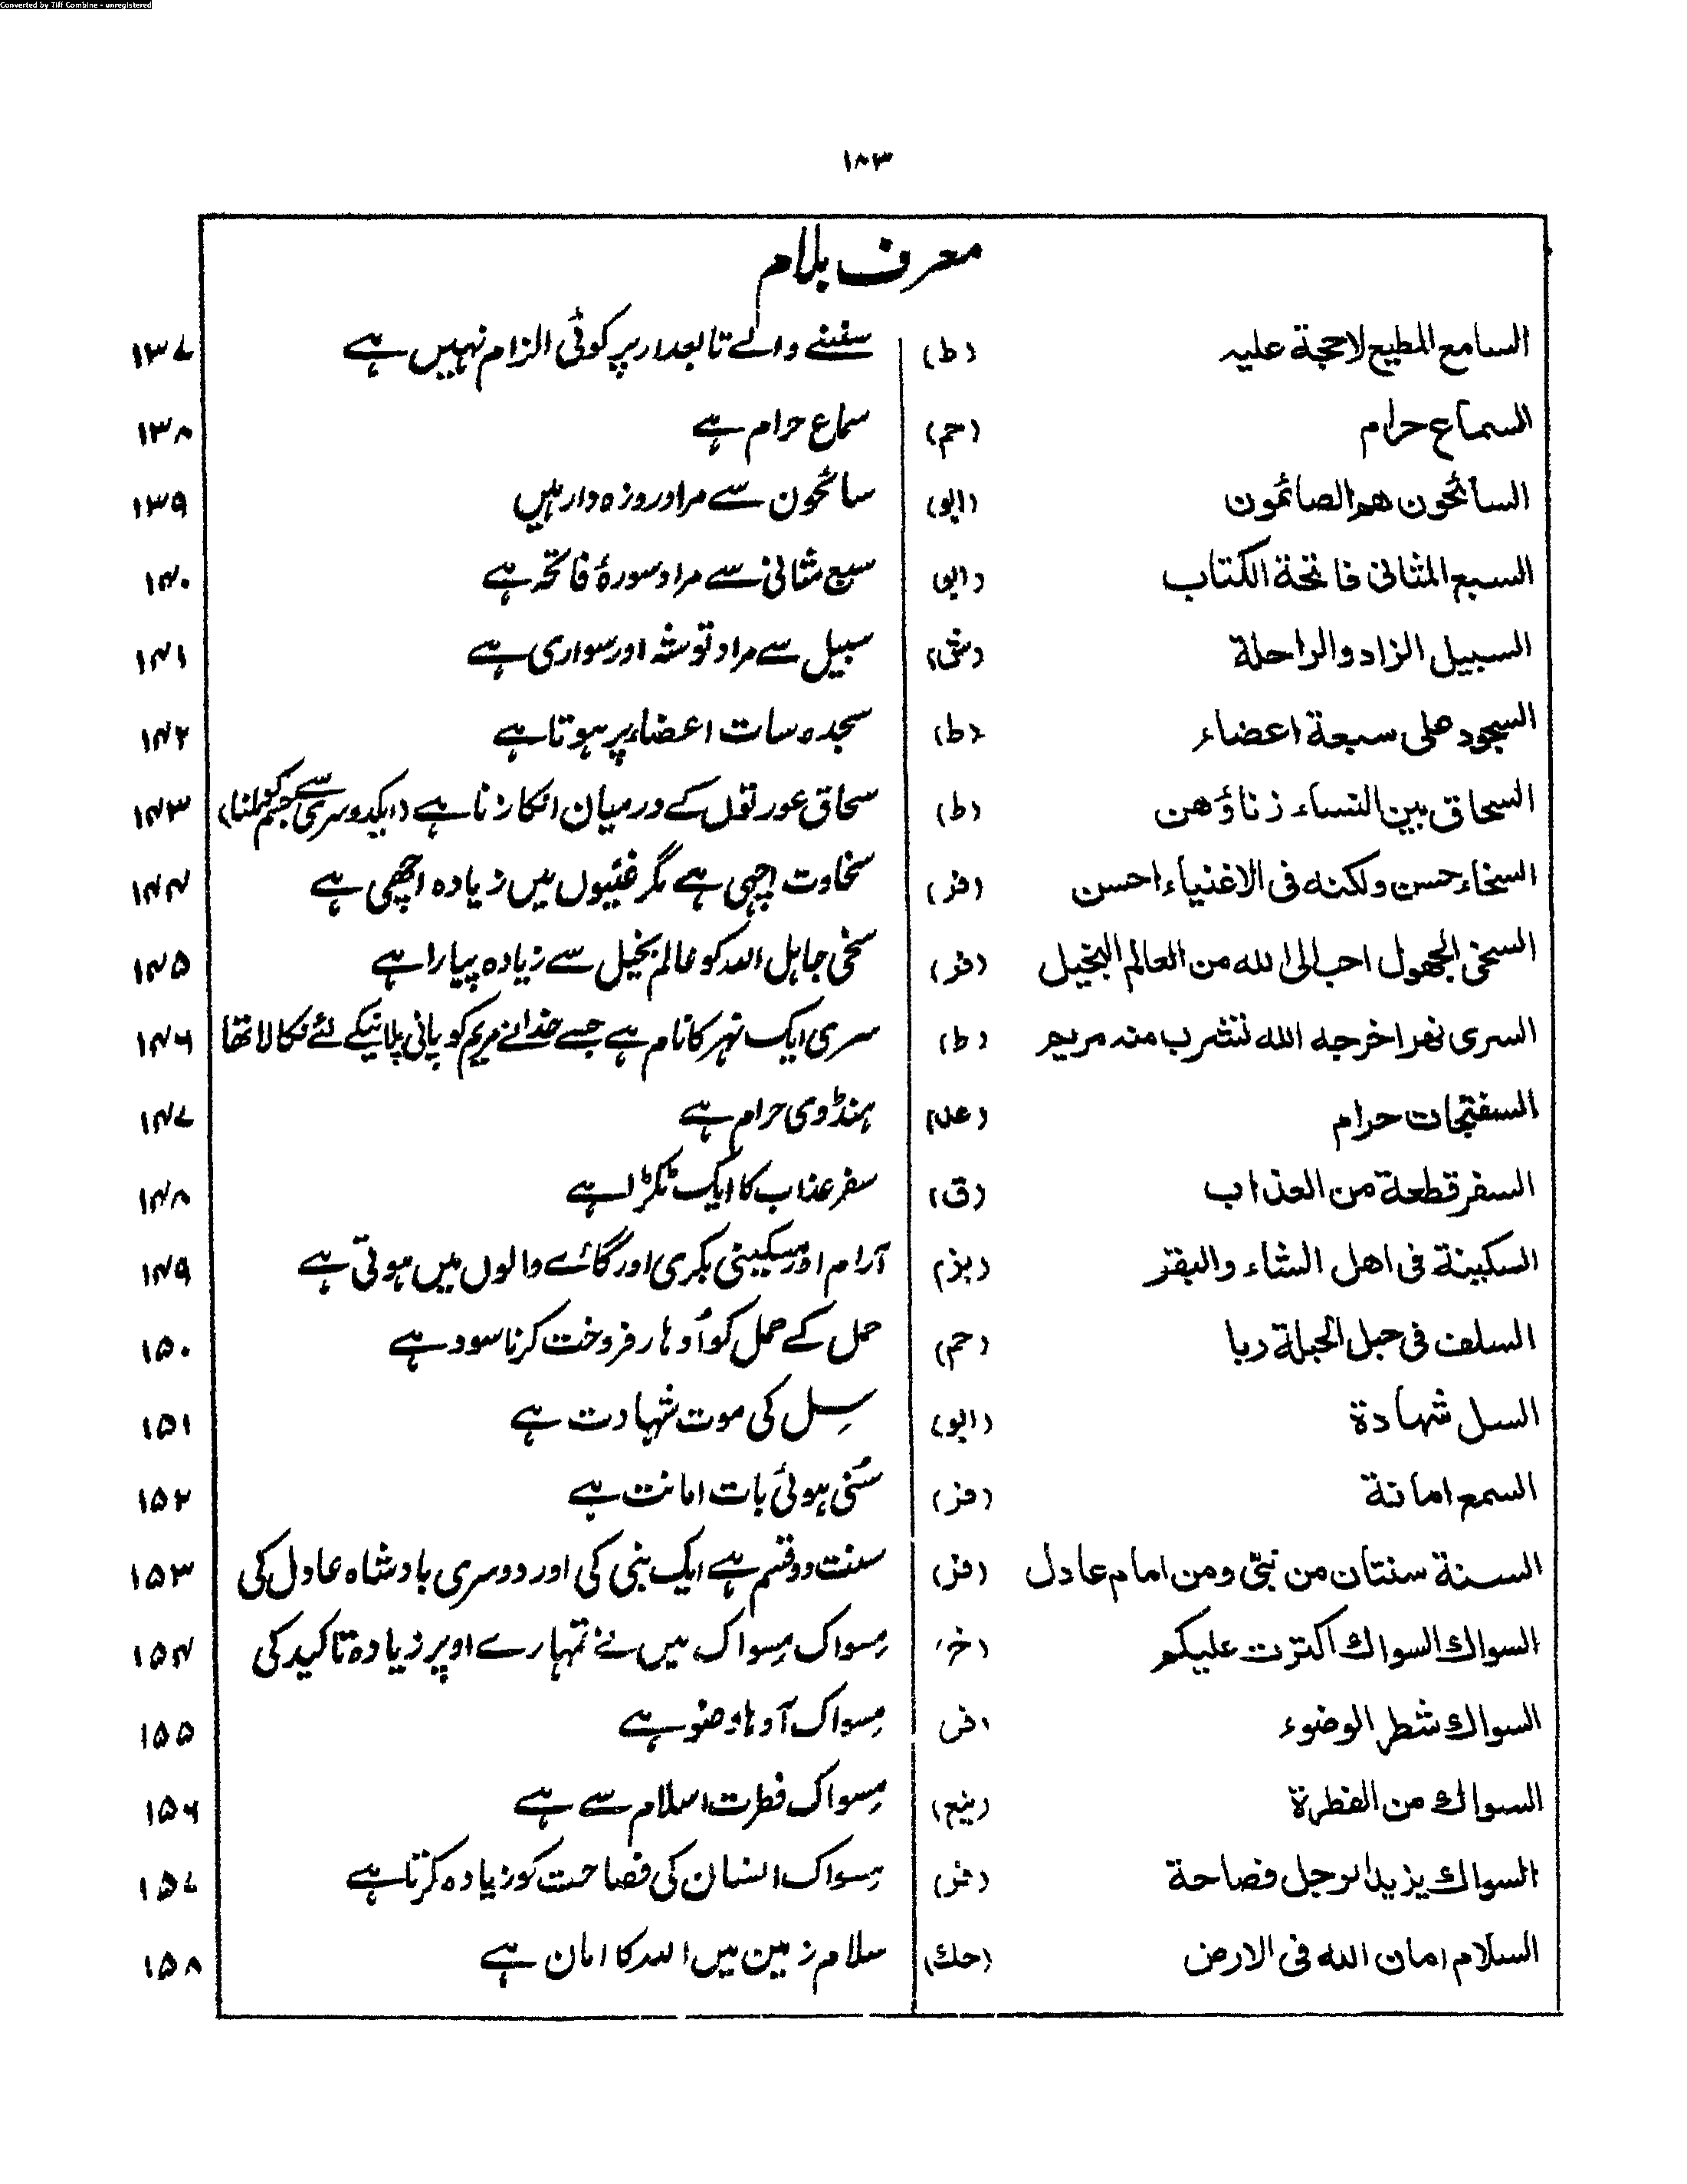 Converted by Tiff Combine - unregistered
۱۸۳
معرف بلام
السامع المطیع لاحجة علیہ (ط) سننے والے تابعدار پر کوئی الزام نہیں ہے ۱۳۷
السماع حرام (حم) سماع حرام ہے ۱۳۸
السائحون هم الصائمون (ابو) سائحون سے مراد روزہ دار ہیں ۱۳۹
السبع المثانی فاتحة الکتاب (ابو) سبع مثانی سے مراد سورۂ فاتحہ ہے ۱۴۰
السبیل الزاد والراحلة (ش) سبیل سے مراد توشہ اور سواری ہے ۱۴۱
السجود علی سبعة اعضاء (ط) سجدہ سات اعضاء پر ہوتا ہے ۱۴۲
السحاق بین النساء زناؤهن (ط) سحاق عورتوں کے درمیان انکا زنا ہے (ایکدوسری سے جسم کو ملنا) ۱۴۳
السخاء حسن ولکنه فی الاغنیاء احسن (فر) سخاوت اچہی ہے مگر غنیوں میں زیادہ اچھی ہے ۱۴۴
السخی الجهول احب الی الله من العالم البخیل (فر) سخی جاہل اللہ کو عالم بخیل سے زیادہ پیارا ہے ۱۴۵
السری نهر اخرجه الله لتشرب منه مریم (ط) سری ایک نہر کا نام ہے جسے خدانے مریم کو پانی پلانیکے لئے نکالا تھا ۱۴۶
السفتجات حرام (عد) ہنڈوی حرام ہے ۱۴۷
السفر قطعة من العذاب (ق) سفر عذاب کا ایک ٹکڑا ہے ۱۴۸
السکینة فی اهل الشاء والبقر (بز) آرام اور مسکینی بکری اور گائے والوں میں ہوتی ہے ۱۴۹
السلف فی حبل الحبلة ربا (حم) حمل کے حمل کو اُدہار فروخت کرنا سود ہے ۱۵۰
السل شهادة (ابو) سِل کی موت شہادت ہے ۱۵۱
السمع امانة (فر) سُنی ہوئی بات امانت ہے ۱۵۲
السنة سنتان من نبیّ ومن امام عادل (فر) سنت دو قسم ہے ایک نبی کی اور دوسری بادشاہ عادل کی ۱۵۳
السواك السواك اکثرت علیکم (خ) مِسواک مِسواک میں نے تمہارے اوپر زیادہ تاکید کی ۱۵۴
السواك شطر الوضوء (فر) مِسواک آدہا وضو ہے ۱۵۵
السواك من الفطرة (نیع) مِسواک فطرت اسلام سے ہے ۱۵۶
السواك یزید الرجل فصاحة (فر) مِسواک انسان کی فصاحت کو زیادہ کرتا ہے ۱۵۷
السلام امان الله فی الارض (حك) سلام زمین میں اللہ کا امان ہے ۱۵۸